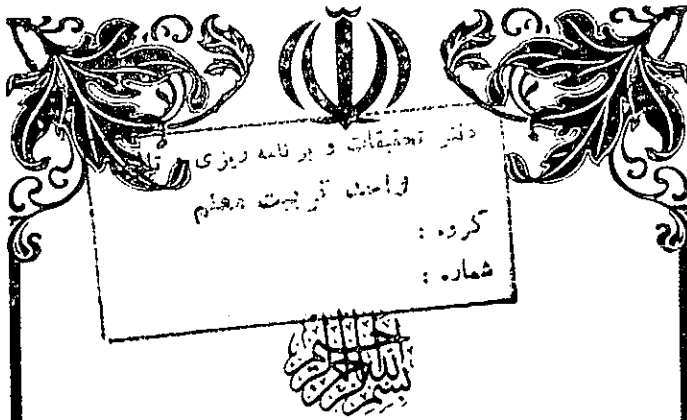 دفتر تحقیقات و برنامه ریزی و تا
واحد تربیت معلم
گروه :
شماره :
بسم الله الرحمن الرحیم